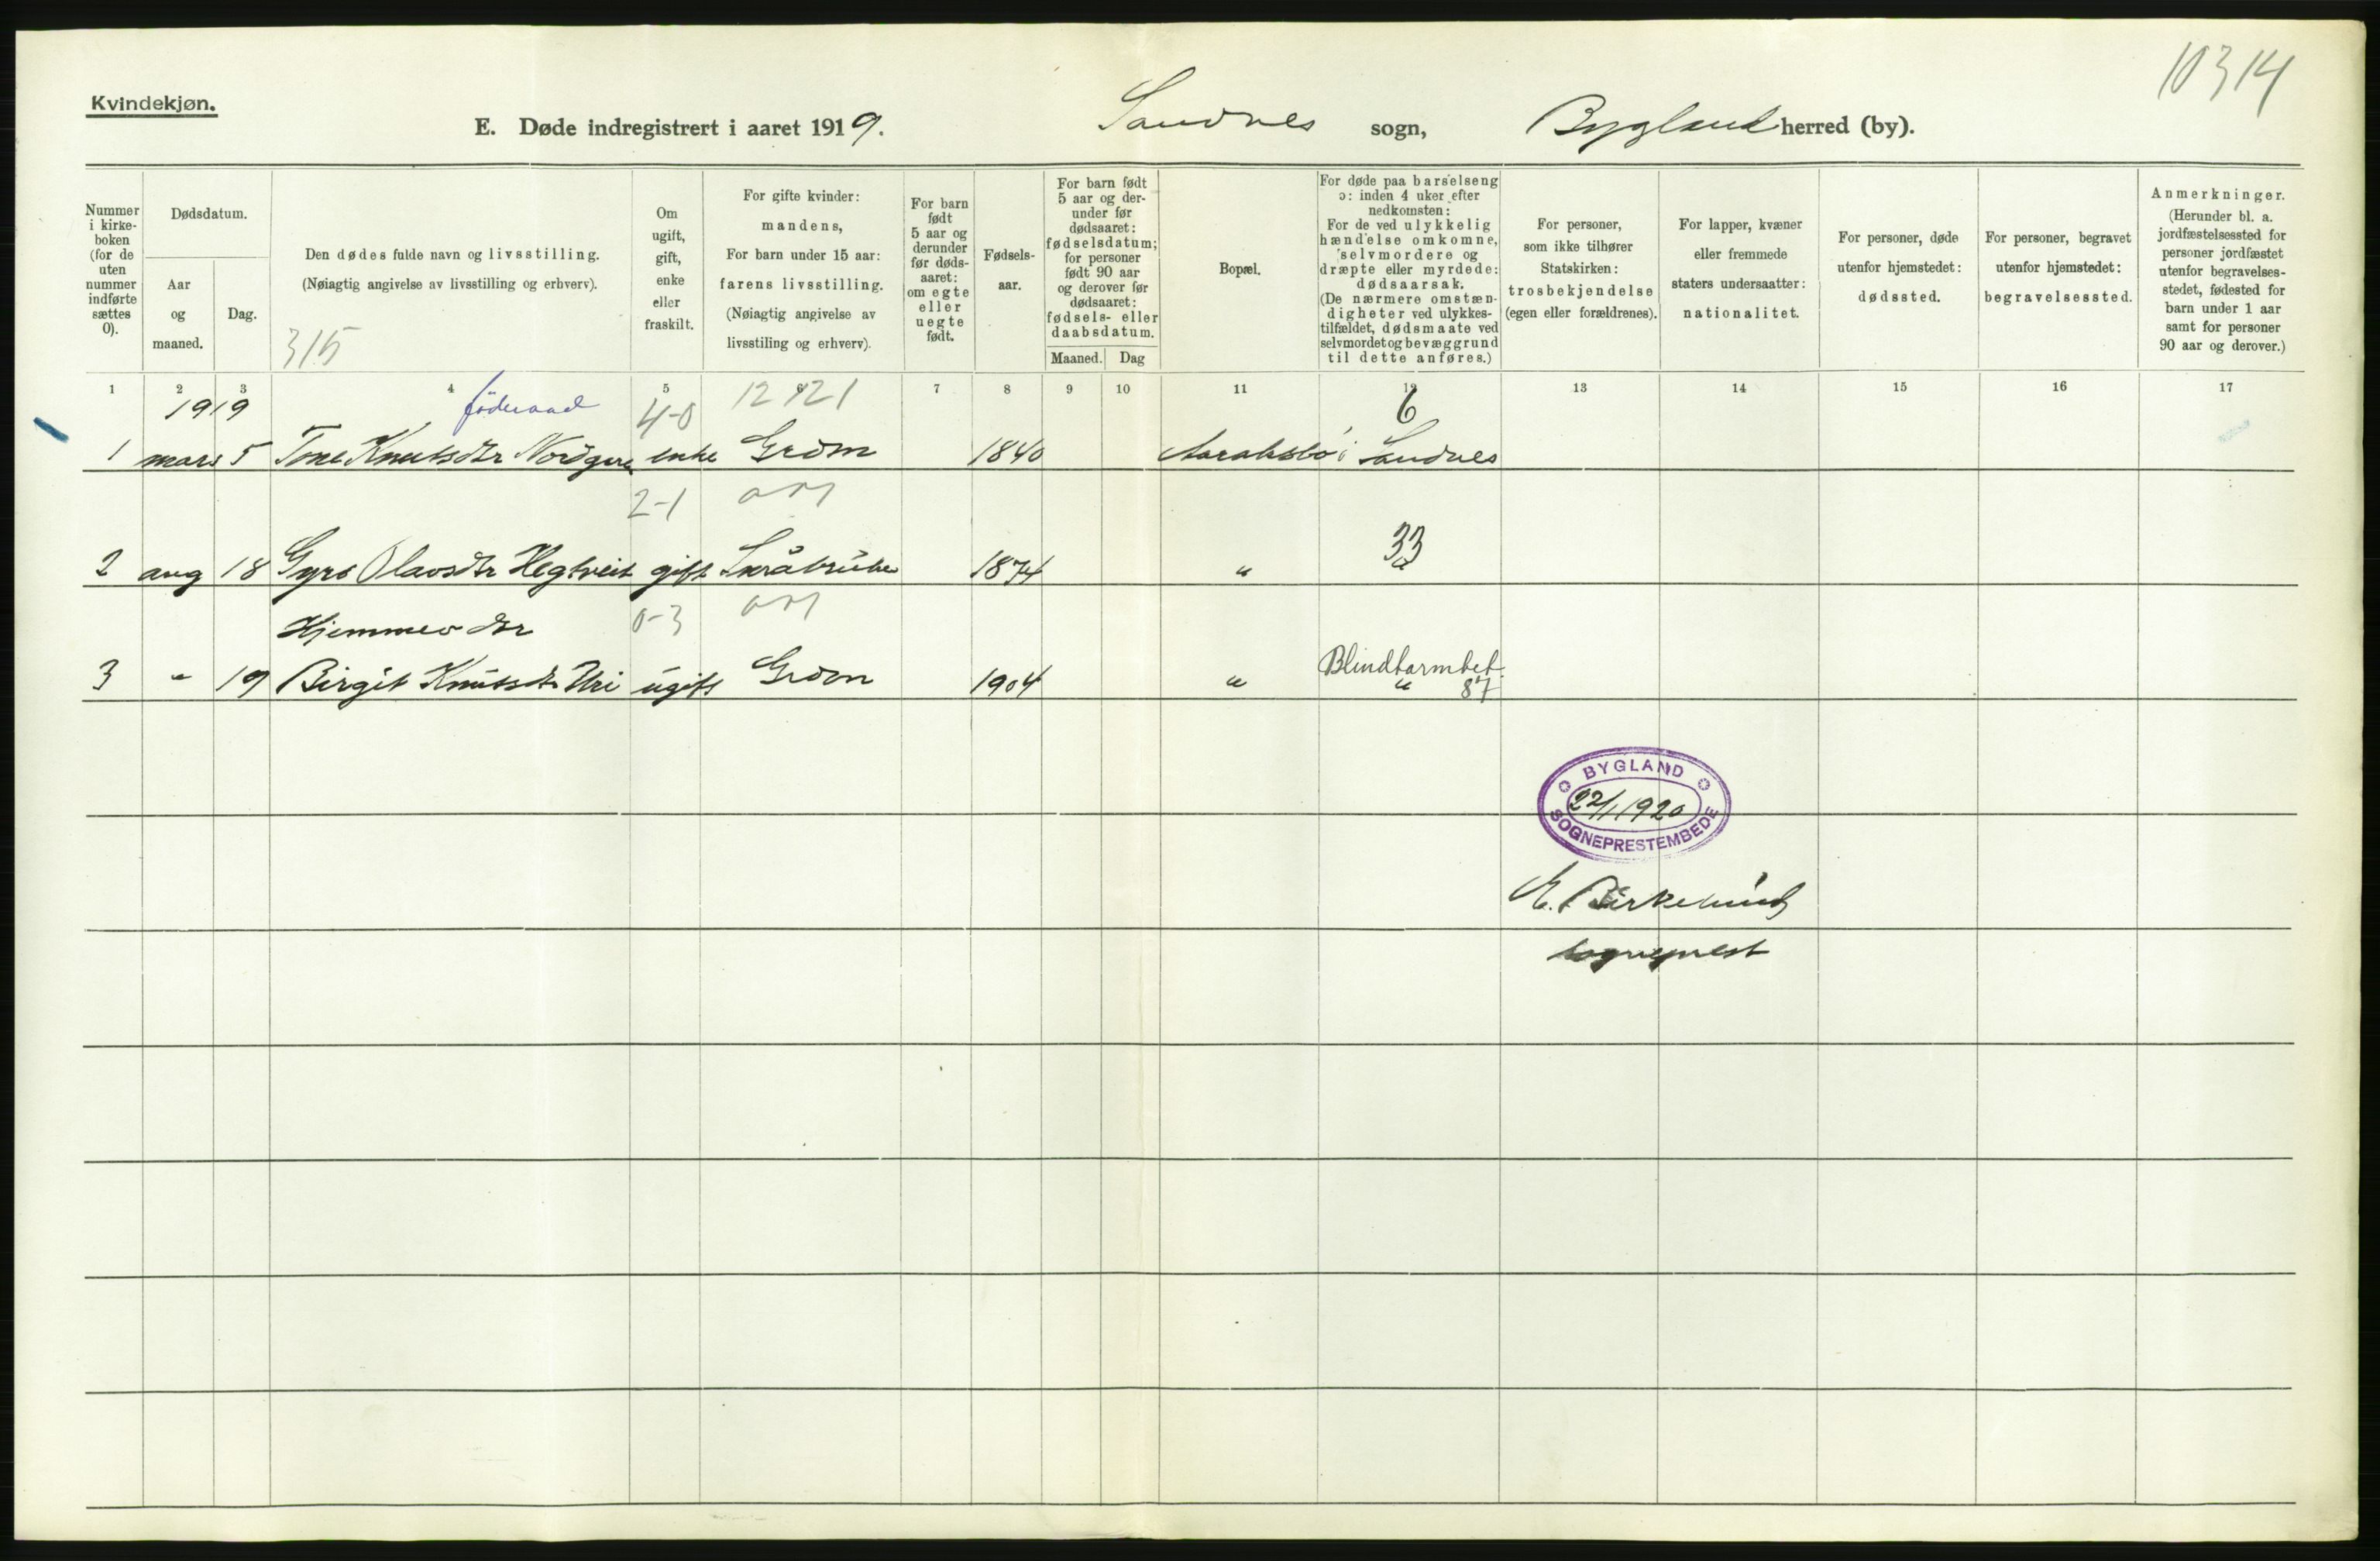 10314
Kvindekjøn.
E. Døde indregistrert i aaret 1919. Sandnes sogn, Bygland herred (by).
Nummer i kirke-
boken
(for de
uten
nummer
indførte
sættes
0).
Dødsdatum.
Aar
og
maaned.
Dag.
Den dødes fulde navn og livsstilling.
(Nøiagtig angivelse av livsstilling og erhverv).
315
Om
ugift,
gift,
enke
eller
fraskilt.
For gifte kvinder:
mandens,
For barn under 15 aar:
farens livsstilling.
(Nøiagtig angivelse av
livsstiling og erhverv).
For barn
født
5 aar og
derunder
før døds-
aaret:
om egte
eller
uegte
født.
Fødsels-
aar.
For barn født
5 aar og der-
under før
dødsaaret:
fødselsdatum;
for personer
født 90 aar
og derover før
dødsaaret:
fødsels- eller
daabsdatum.
Maaned. Dag
Bopæl.
For døde paa barselseng
ɔ: inden 4 uker efter
nedkomsten:
For de ved ulykkelig
hændelse omkomne,
selvmordere og
dræpte eller myrdede:
dødsaarsak.
(De nærmere omstæn-
digheter ved ulykkes-
tilfældet, dødsmaate ved
selvmordet og bevæggrund
til dette anføres.)
For personer,
som ikke tilhører
Statskirken:
trosbekjendelse
(egen eller forældrenes).
For lapper, kvæner
eller fremmede
staters undersaatter:
nationalitet.
For personer, døde
utenfor hjemstedet:
dødssted.
For personer, begravet
utenfor hjemstedet:
begravelsessted.
Anmerkninger.
(Herunder bl. a.
jordfæstelsessted for
personer jordfæstet
utenfor begravelses-
stedet, fødested for
barn under 1 aar
samt for personer
90 aar og derover.)
1 2 3 4 5 6 7 8 9 10 11 12 13 14 15 16 17
1919 føderaad 4-0 12 121 6
1 mars 5 Tone Knutsdtr Nordgare enke Grdm 1840 Aaraksbø i Sandnes
2-1
33
2 aug 18 Gyro Olavsdtr Hegtveit gift Småbruker 1874 "
Hjemmev dtr 0-3
Blindtarmbet.
3 " 19 Birgit Knutsdtr Uri ugift Grdm 1904 " " 87
BYGLAND
22/1 1920
SOGNEPRESTEMBEDE
Birkelund
sogneprest